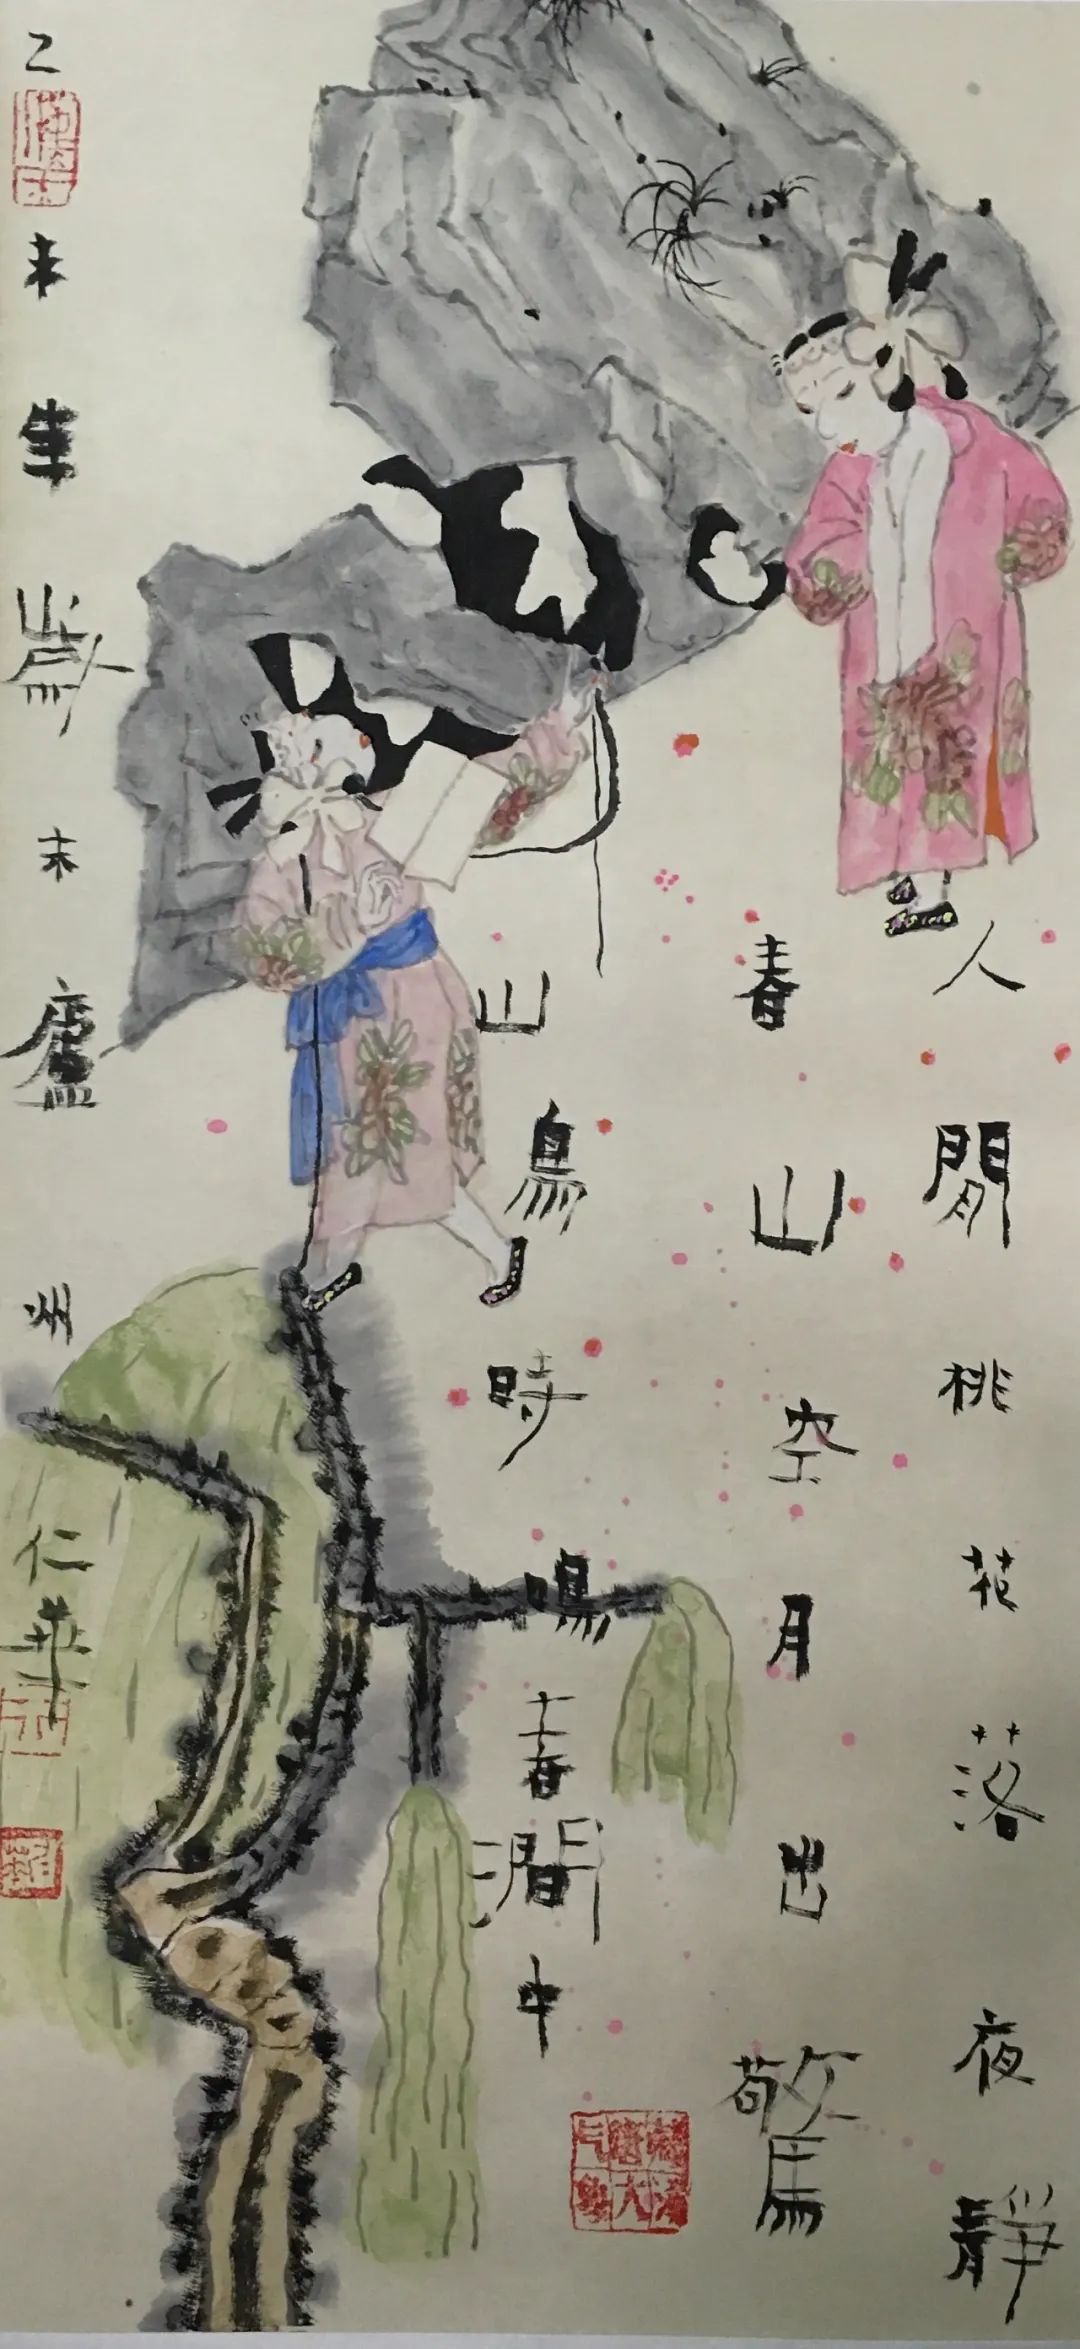 人閒桃花落夜靜
春山空月出驚
山鳥時鳴春澗中
乙未年歲末廬州仁華